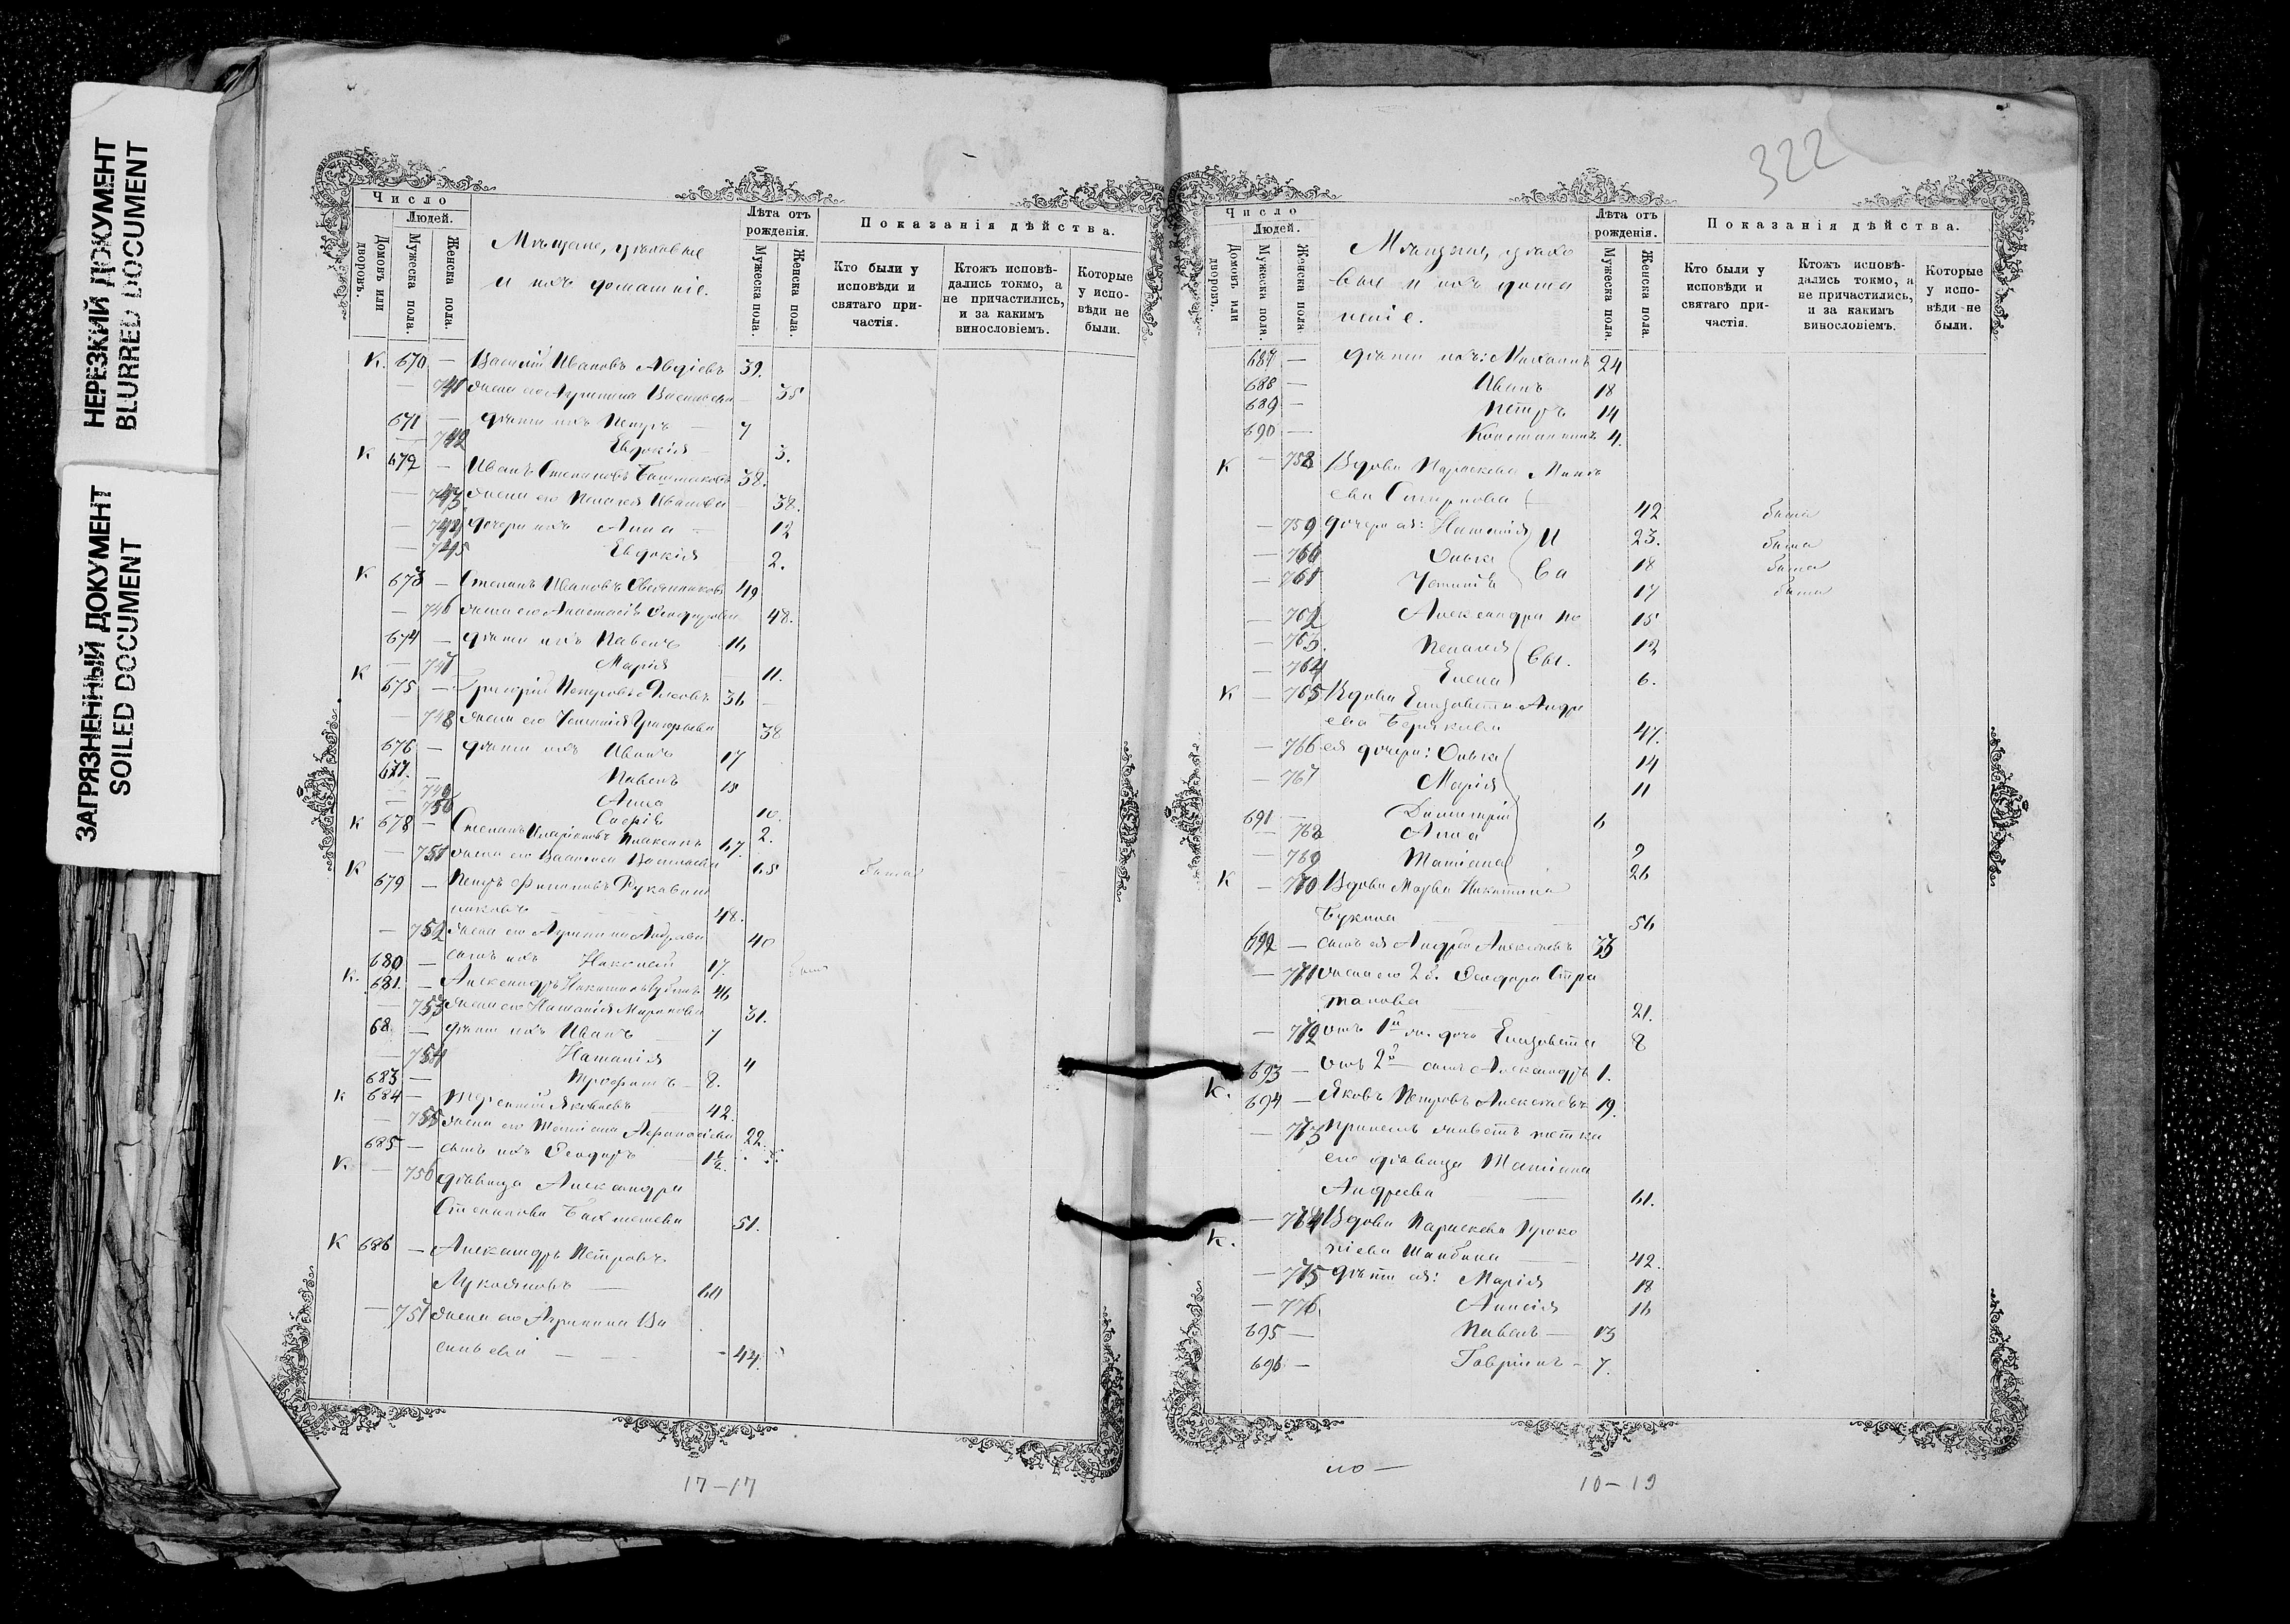 НЕРЕЗКИЙ ДОКУМЕНТ
BLURRED DOCUMENT
ЗАГРЯЗНЕННЫЙ ДОКУМЕНТ
SOILED DOCUMENT
Число
Людей.
Домовъ или дворовъ.
Мужеска пола.
Женска пола.
Мѣщане, цѣховые
и ихъ домашніе.
Лѣта отъ рожденія.
Мужеска пола.
Женска пола.
Показанія дѣйства.
Кто были у исповѣди и святаго причастія.
Ктожъ исповѣдались токмо, а не причастились, и за какимъ винословіемъ.
Которые у исповѣди не были.
К. 670 — Василій Ивановъ Авдіевъ 39.
— 741 жена его Агрипина Васильева — 35
671 — дѣти ихъ Петръ — 7
— 742 Евдокія 3.
К 672 — Иванъ Степановъ Башмаковъ 38.
— 743 жена его Пелагея Иванова 38.
— 744 дочери ихъ Анна — 12
— 745 Евдокія 2.
К 673 — Степанъ Ивановъ 49
— 746 жена его Анастасія Ѳеодорова 48.
674 — дѣти ихъ Павелъ 16
— 747 Марія 11.
К 675 — Григорій Петровъ 36 —
— 748 жена его Григорьева 38
676 — дѣти ихъ Иванъ 17
677. — Павелъ 15
— 749 Анна 10.
— 750 Софія 2.
К 678 — Степанъ Иларіоновъ 67.
— 751 жена его Васильева 65
К 679 — Петръ Филиповъ Рукавиш
никовъ 48.
— 752 жена его Агрипина Андреева 40
680 — сынъ ихъ Николай 17.
К. 681. — Александръ 46
— 753 жена его Наталія Миронова 31.
68 — дѣти ихъ Иванъ 7
— 754 Наталія 4
683 — Трофимъ — 8.
К 684 — Яковлевъ 42.
— 755 жена его Татіана 22.
685 — сынъ ихъ Ѳеодоръ 1½.
К — 756 дѣвица Александра
Степанова Бахметева 51.
К 686 — Александръ Петровъ
Лукояновъ — 60
— 757 жена его Агрипина Ва
сильева — — - 44.
17 — 17
322
Число
Людей.
Домовъ или дворовъ.
Мужеска пола.
Женска пола.
Мѣщане, цѣхо
вые и ихъ дома
шніе.
Лѣта отъ рожденія.
Мужеска пола.
Женска пола.
Показанія дѣйства.
Кто были у исповѣди и святаго причастія.
Ктожъ исповѣдались токмо, а не причастились, и за какимъ винословіемъ.
Которые у исповѣди не были.
687 — дѣти ихъ: Михаилъ 24
688 — Иванъ 18
689 — Петръ 14
690 — Константинъ 4.
К — 758 Вдова Параскева
Смирнова 42 была
— 759 дочери ея: Наталія 23. была
— 760 Ольга 18 была
— 761 Устинія 17 была
— 762 Александра 15
— 763. Пелагея 12
— 764 Елена 6.
К — 765 Вдова Елизавета Андре
ева 47.
— 766 ея дочери: Ольга 14
— 767 Марія 11
691 — Димитрій 6
— 768 Анна 9
— 769 Татіана 26
К — 770 Вдова Марѳа Никитина
Букина 56
692 — сынъ ея Андрей Алексѣевъ 33
— 771 жена его 2 б. Ѳеодора
21.
— 772 отъ 1й ж. дочь Елизавета 8
693 — отъ 2й — сынъ Александръ 1.
К. 694 — Яковъ Петровъ Алексѣевъ 19.
— 773 При немъ живетъ тетка
его дѣвица Татіана
Андреева — 61.
К. — 774 Вдова Параскева Проко
піева Шибина 42.
— 775 дѣти ея: Марія 18
— 776 Анисія 16
695 — Павелъ — 13
696 — Гавріилъ — 7.
10 — 19